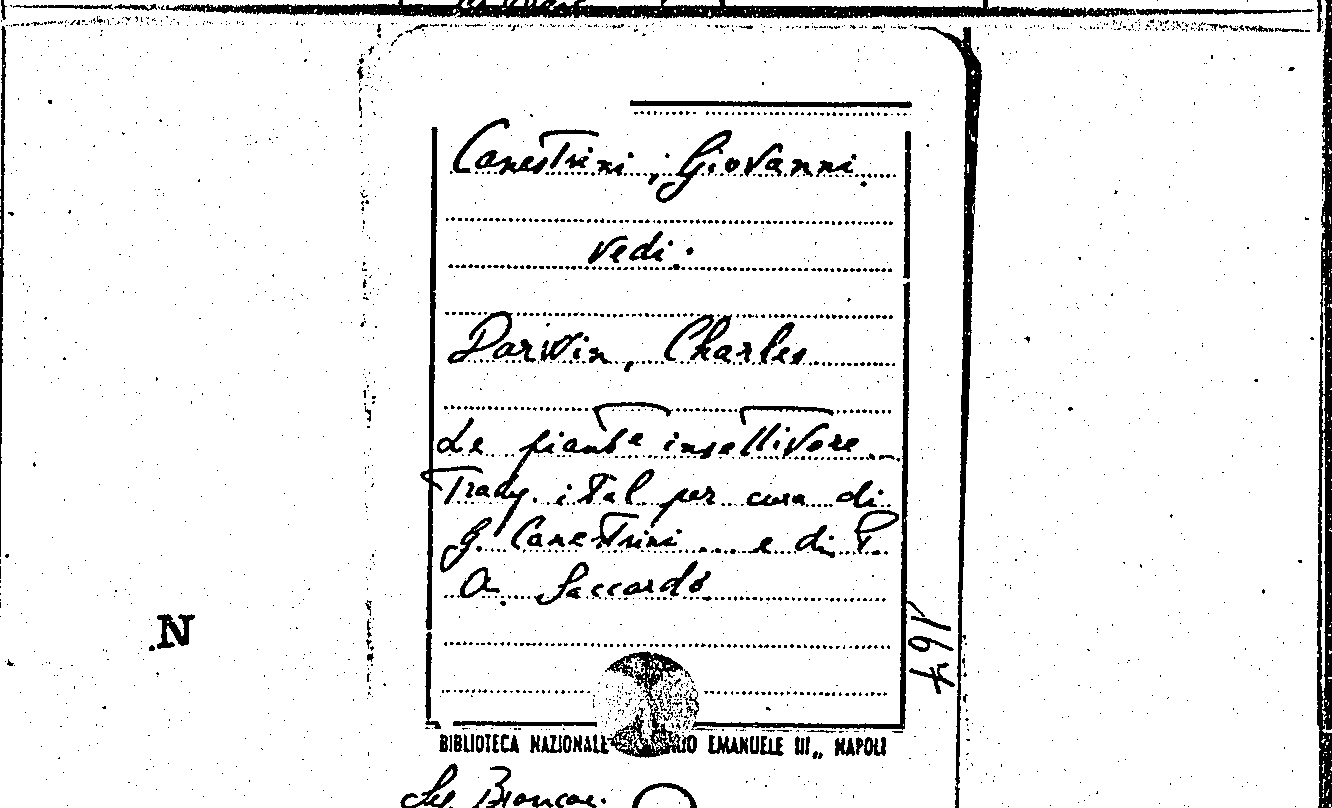 Canestrini, Giovanni.
vedi:
Darwin, Charles
Le piante insettivore.
Traduz. ital per cura di
G. Canestrini ... e di P.
A. Saccardo.
N
164
BIBLIOTECA NAZIONALE EMANUELE III„ NAPOLI